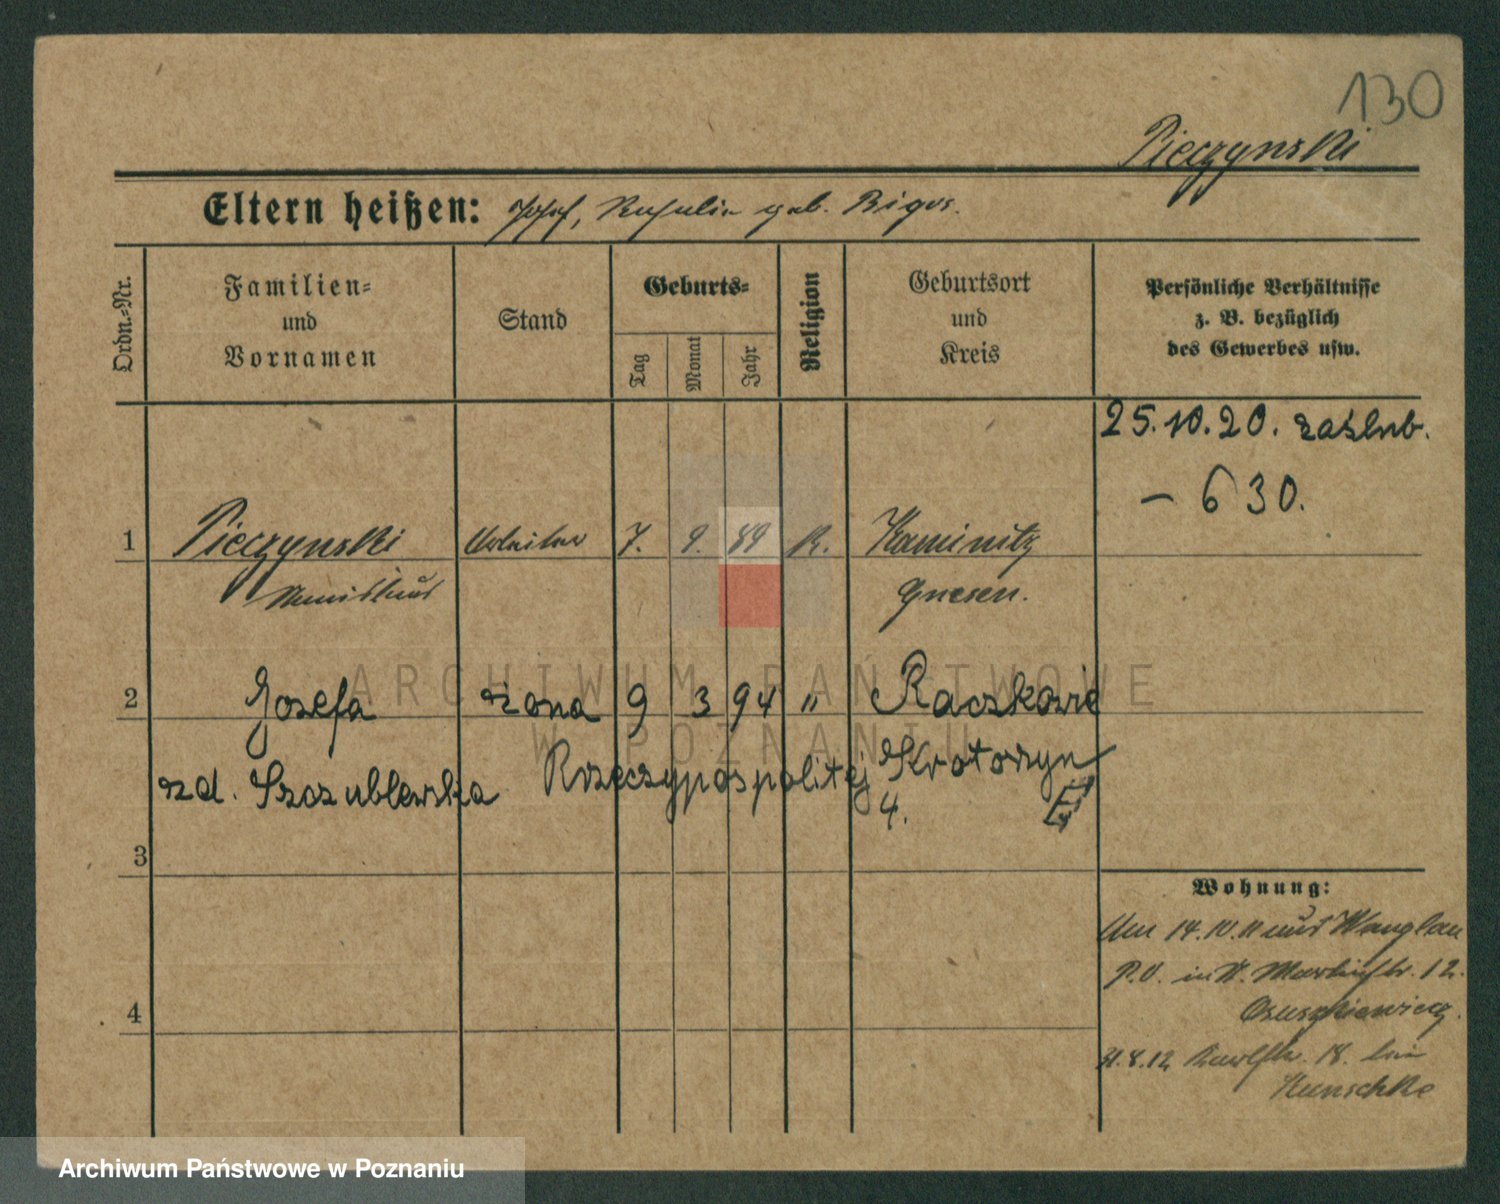 130
Pieczynski
Eltern heißen: Josef, Rosalie geb. Bigos.
Ordn.-Nr.
Familien-
und
Vornamen
Stand
Geburts-
Tag
Monat
Jahr
Religion
Geburtsort
und
Kreis
Persönliche Verhältnisse
z. B. bezüglich
des Gewerbes usw.
25.10.20. zaślub.
– 630.
1 Pieczynski Arbeiter 7. 9. 89 R. Kaminitz
Gnesen.
2 Jozefa żona 9 3 94 " Raczkowie
zd. Szczublewska Rzeczypospolitej Krotoszyn
4.
3
4
Wohnung:
Am 14.10.11 aus
P.O. in 12.
31.8.12 18. bei
Kunschke
ARCHIWUM PAŃSTWOWE
W POZNANIU
Archiwum Państwowe w Poznaniu